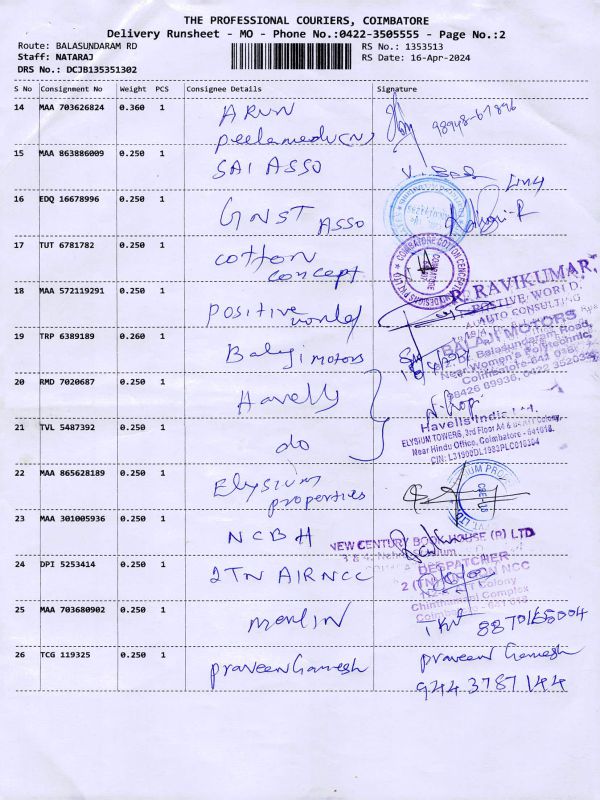 THE PROFESSIONAL COURIERS, COIMBATORE
Delivery Runsheet - MO - Phone No.:0422-3505555 - Page No.:2
Route: BALASUNDARAM RD RS No.: 1353513
Staff: NATARAJ RS Date: 16-Apr-2024
DRS No.: DCJB135351302
S No Consignment No Weight PCS Consignee Details Signature
14 MAA 703626824 0.360 1 ARUN
peelamedu(N)
15 MAA 863886009 0.250 1 SAI ASSO
16 EDQ 16678996 0.250 1 GNST ASSO
17 TUT 6781782 0.250 1 cotton
concept
COIMBATORE COTTON CONCEPT
18 MAA 572119291 0.250 1 Positive
world
R. RAVIKUMAR,
POSITIVE WORLD.
AUTO CONSULTING
19 TRP 6389189 0.260 1 Balaji motors
BALAJI MOTORS
Balasundaram Road,
Near Women's Polytechnic,
20 RMD 7020687 0.250 1 Havells
21 TVL 5487392 0.250 1 do
Havells India Ltd.
ELYSIUM TOWERS, 3rd Floor
Near Hindu Office, Coimbatore - 641018.
22 MAA 865628189 0.250 1 Elysium
properties
23 MAA 301005936 0.250 1 NCBH
NEW CENTURY BOOK HOUSE (P) LTD
24 DPI 5253414 0.250 1 2TN AIR NCC
DESPATCHER
NCC
Colony
Chinthamani Complex
25 MAA 703680902 0.250 1 merlin
26 TCG 119325 0.250 1 praveen Gamesh praveen Gamesh
9443787144